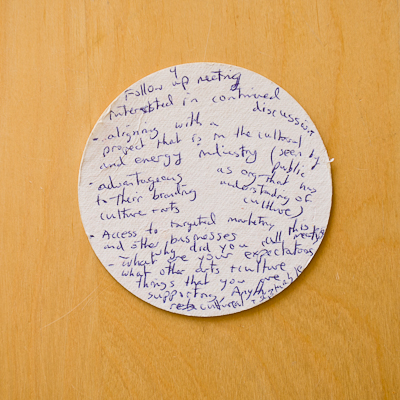 Follow up meeting
Interested in continued discussion
- aligning with a
project that is in the cultural
and energy industry (seen by public
- advantageous as org. that has
to their branding understanding of
culture + arts culture)
- Access to targeted marketing
and other businesses
why did you call this meeting
- what are your expectations
what other arts + culture
things that you are
supporting. Any